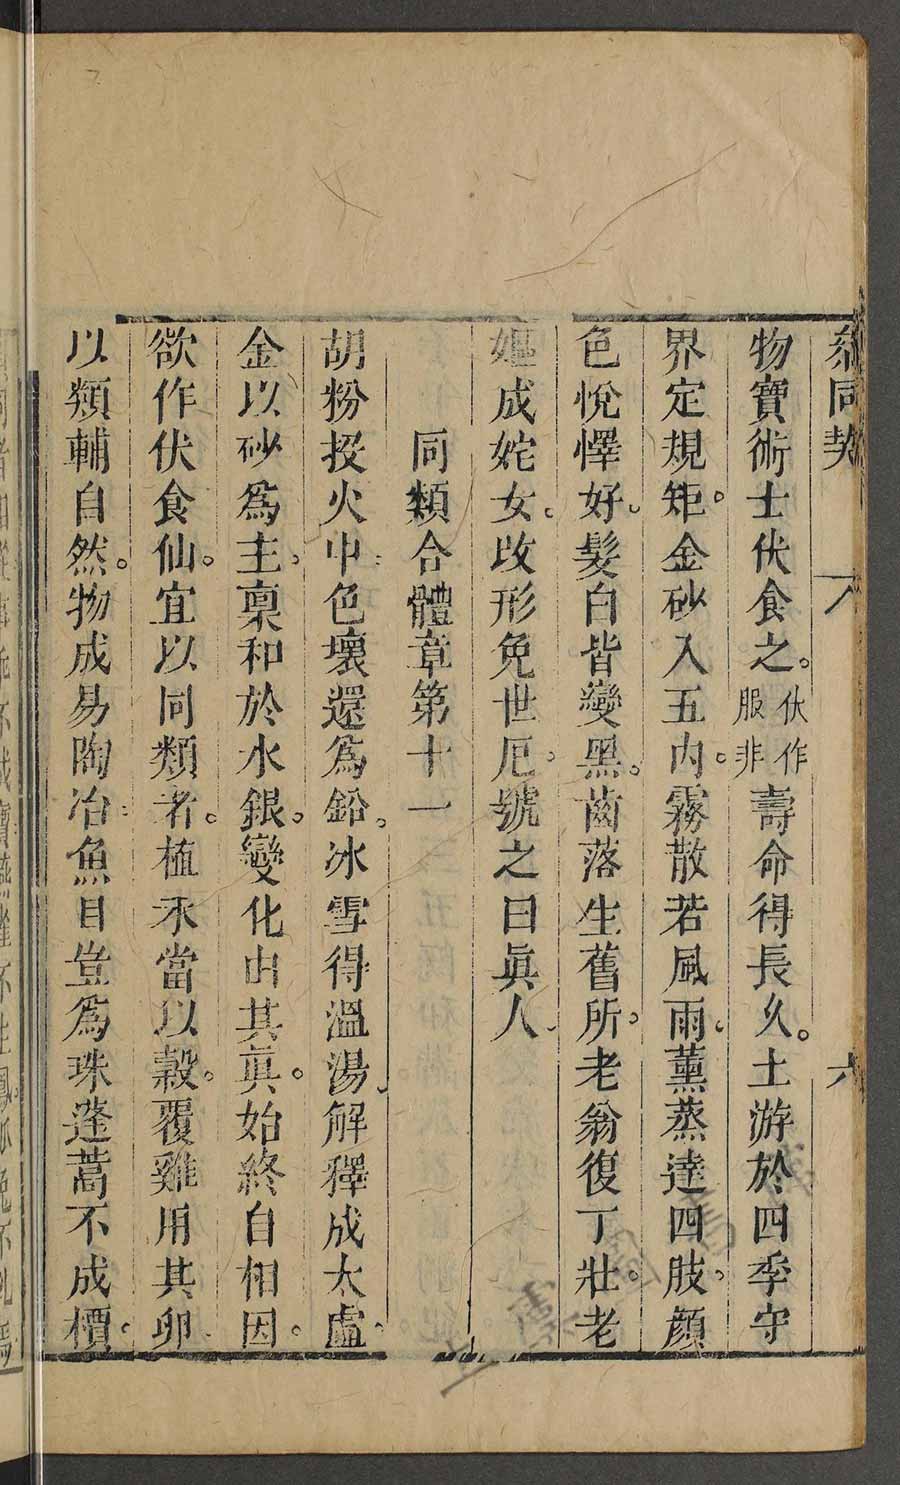 叅同契 六
物寶術士伏食之。伏作服非壽命得長久。土游於四季守
界定規矩。金砂入五内。霧散若風雨。薰蒸達四肢。顔
色悅懌好。髮白皆變黑。齒落生舊所。老翁復丁壯。老
嫗成姹女。改形免世厄。號之曰眞人。
同類合體章第十一
胡粉投火中。色壞還爲鉛。冰雪得溫湯。解釋成太虛。
金以砂爲主。稟和於水銀。變化由其眞。始終自相因。
欲作伏食仙。宜以同類者。植禾當以穀。覆雞用其卵
以類輔自然。物成易陶冶。魚目豈爲珠蓬蒿不成檟。